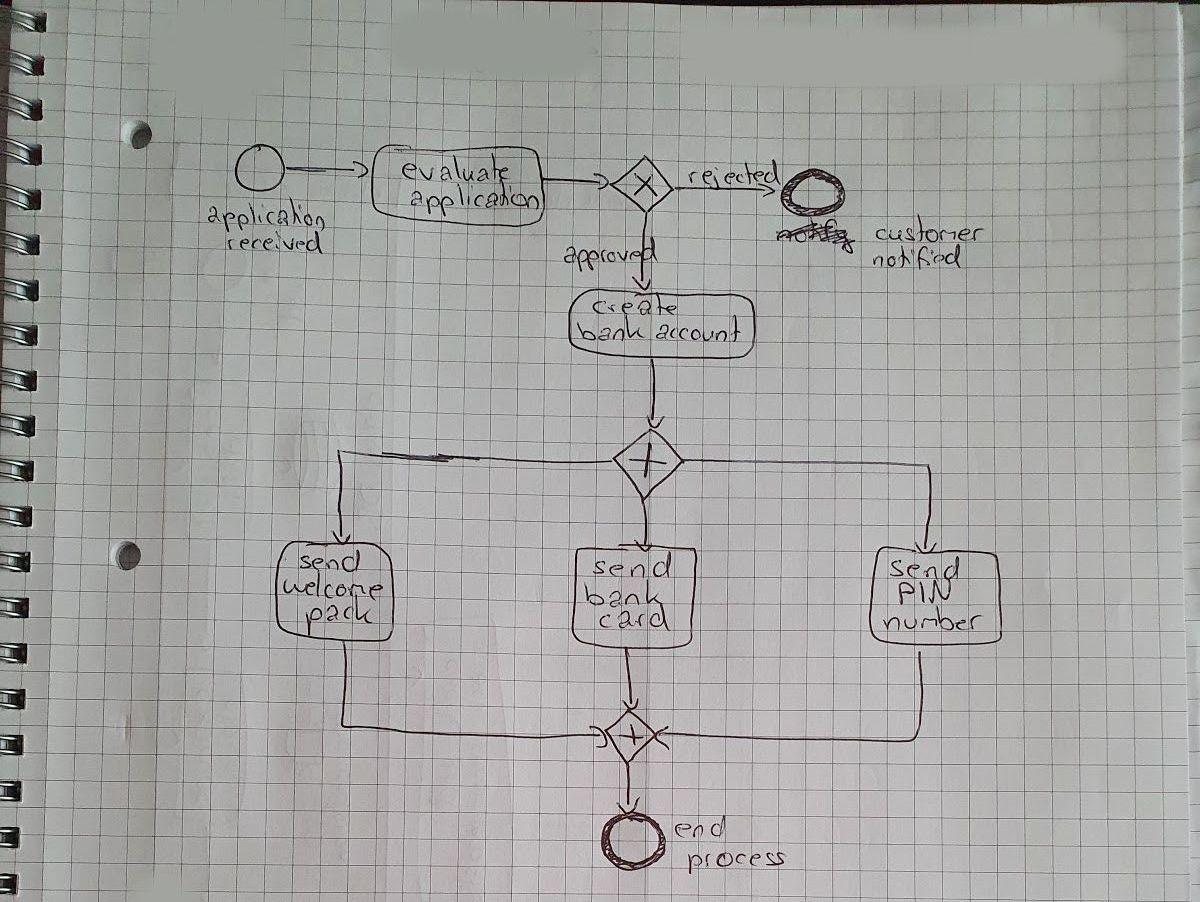 evaluate
application
rejected
application
received
customer
notified
approved
create
bank account
send
welcome
pack
send
bank
card
send
PIN
number
end
process